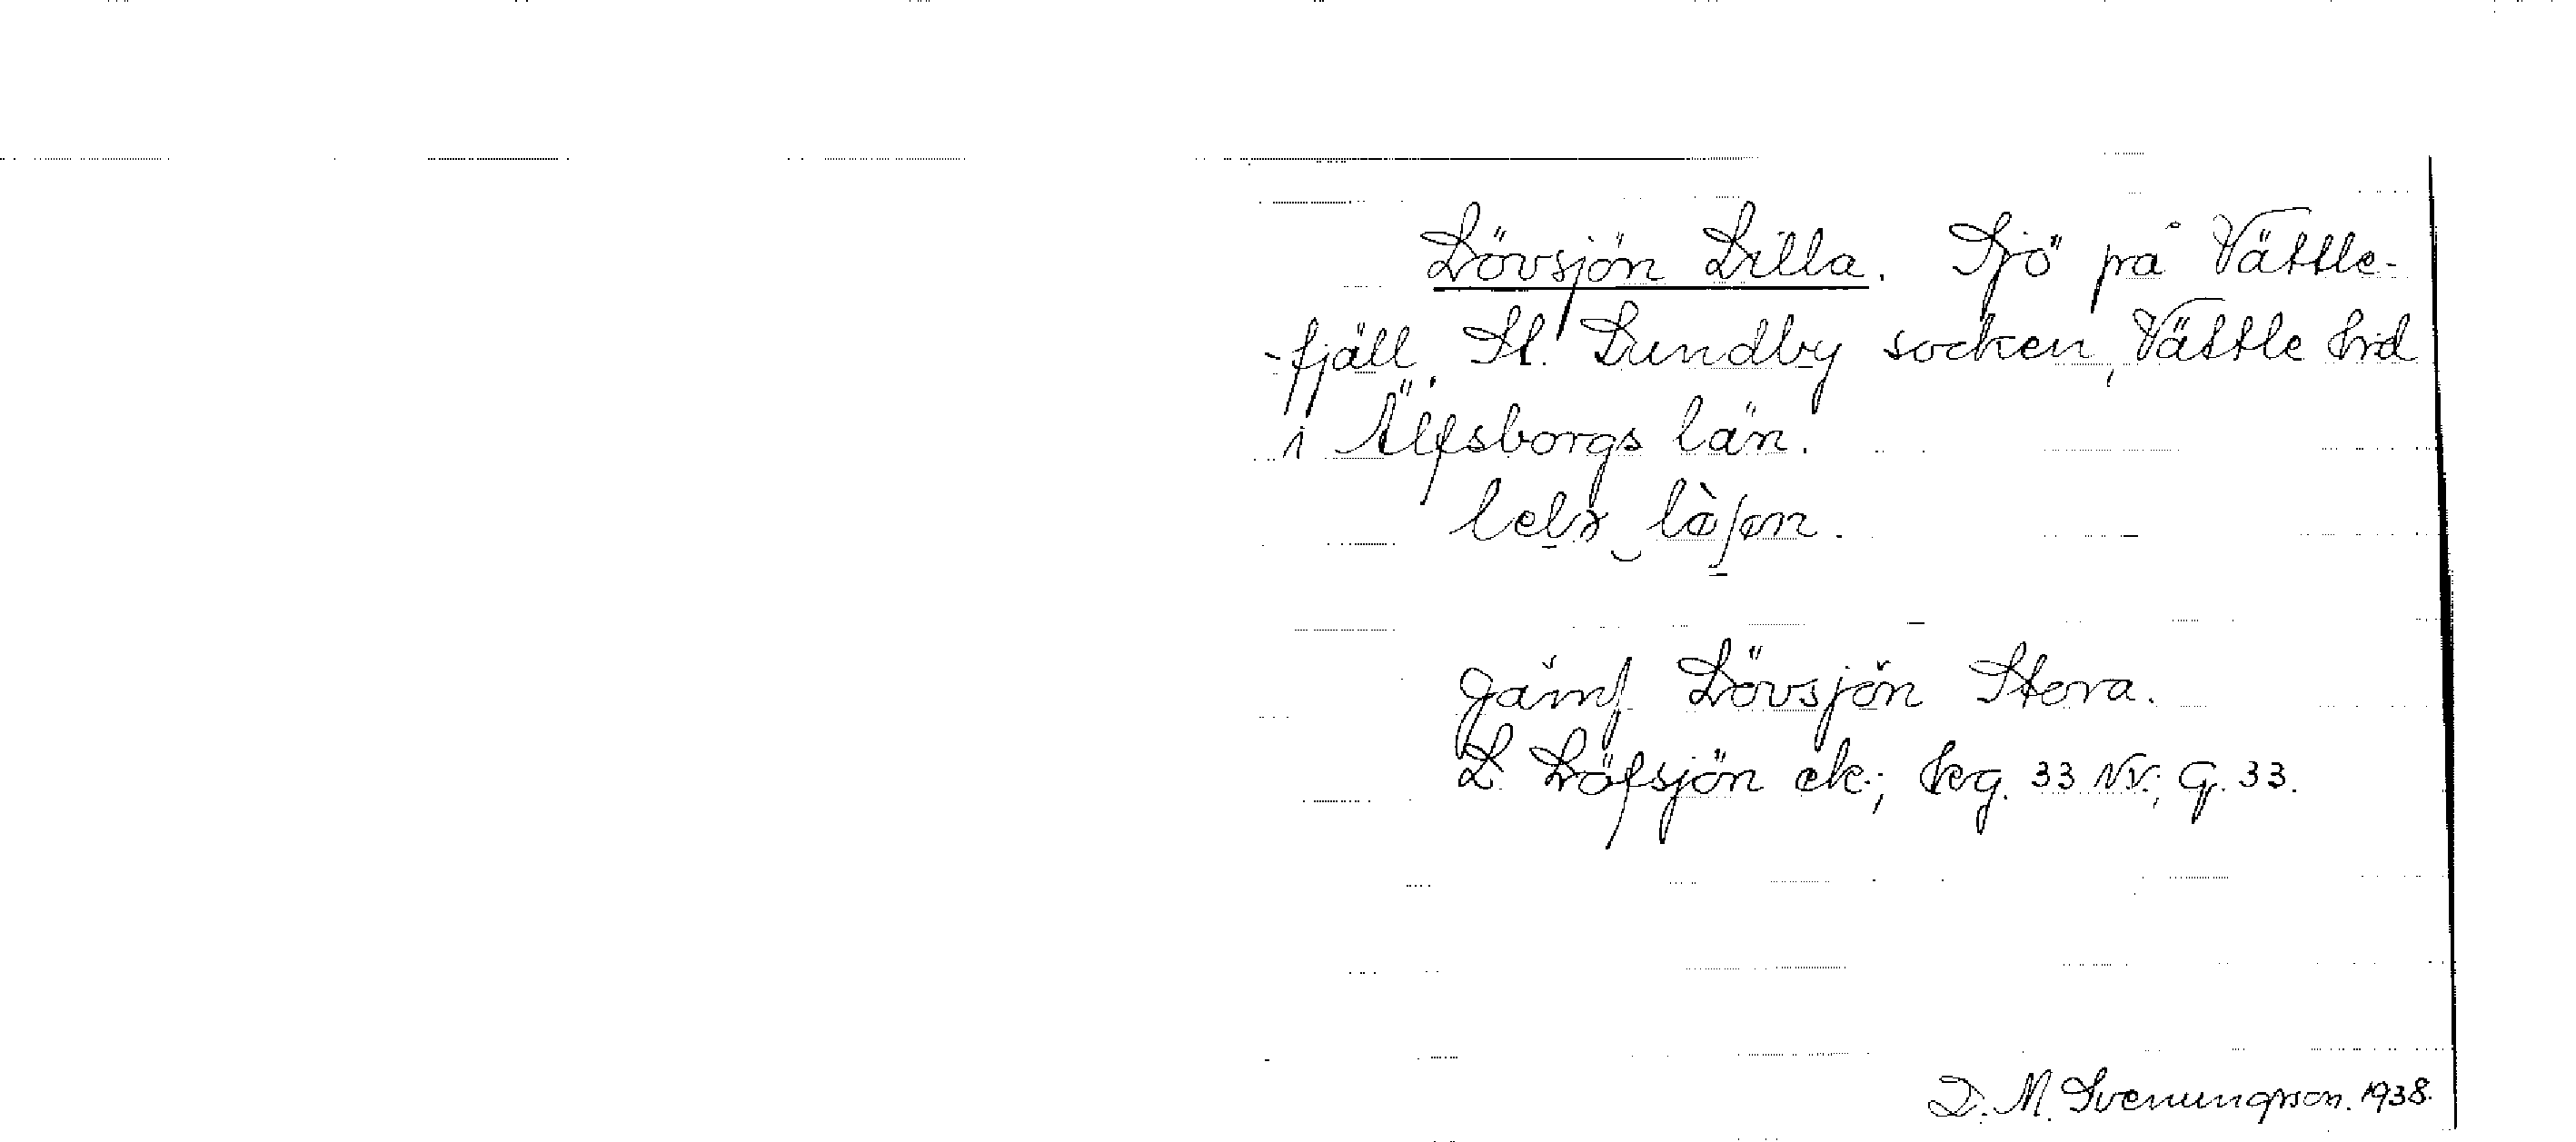 Lövsjön Lilla. Sjö på Vättle-
-fjäll, St. Lundby socken, Vättle hrd
i Älfsborgs län.
Jämf Lövsjön Stora.
L. Löfsjön ek.; 33 NV.; G. 33.
D. M. Svenungsson. 1938.